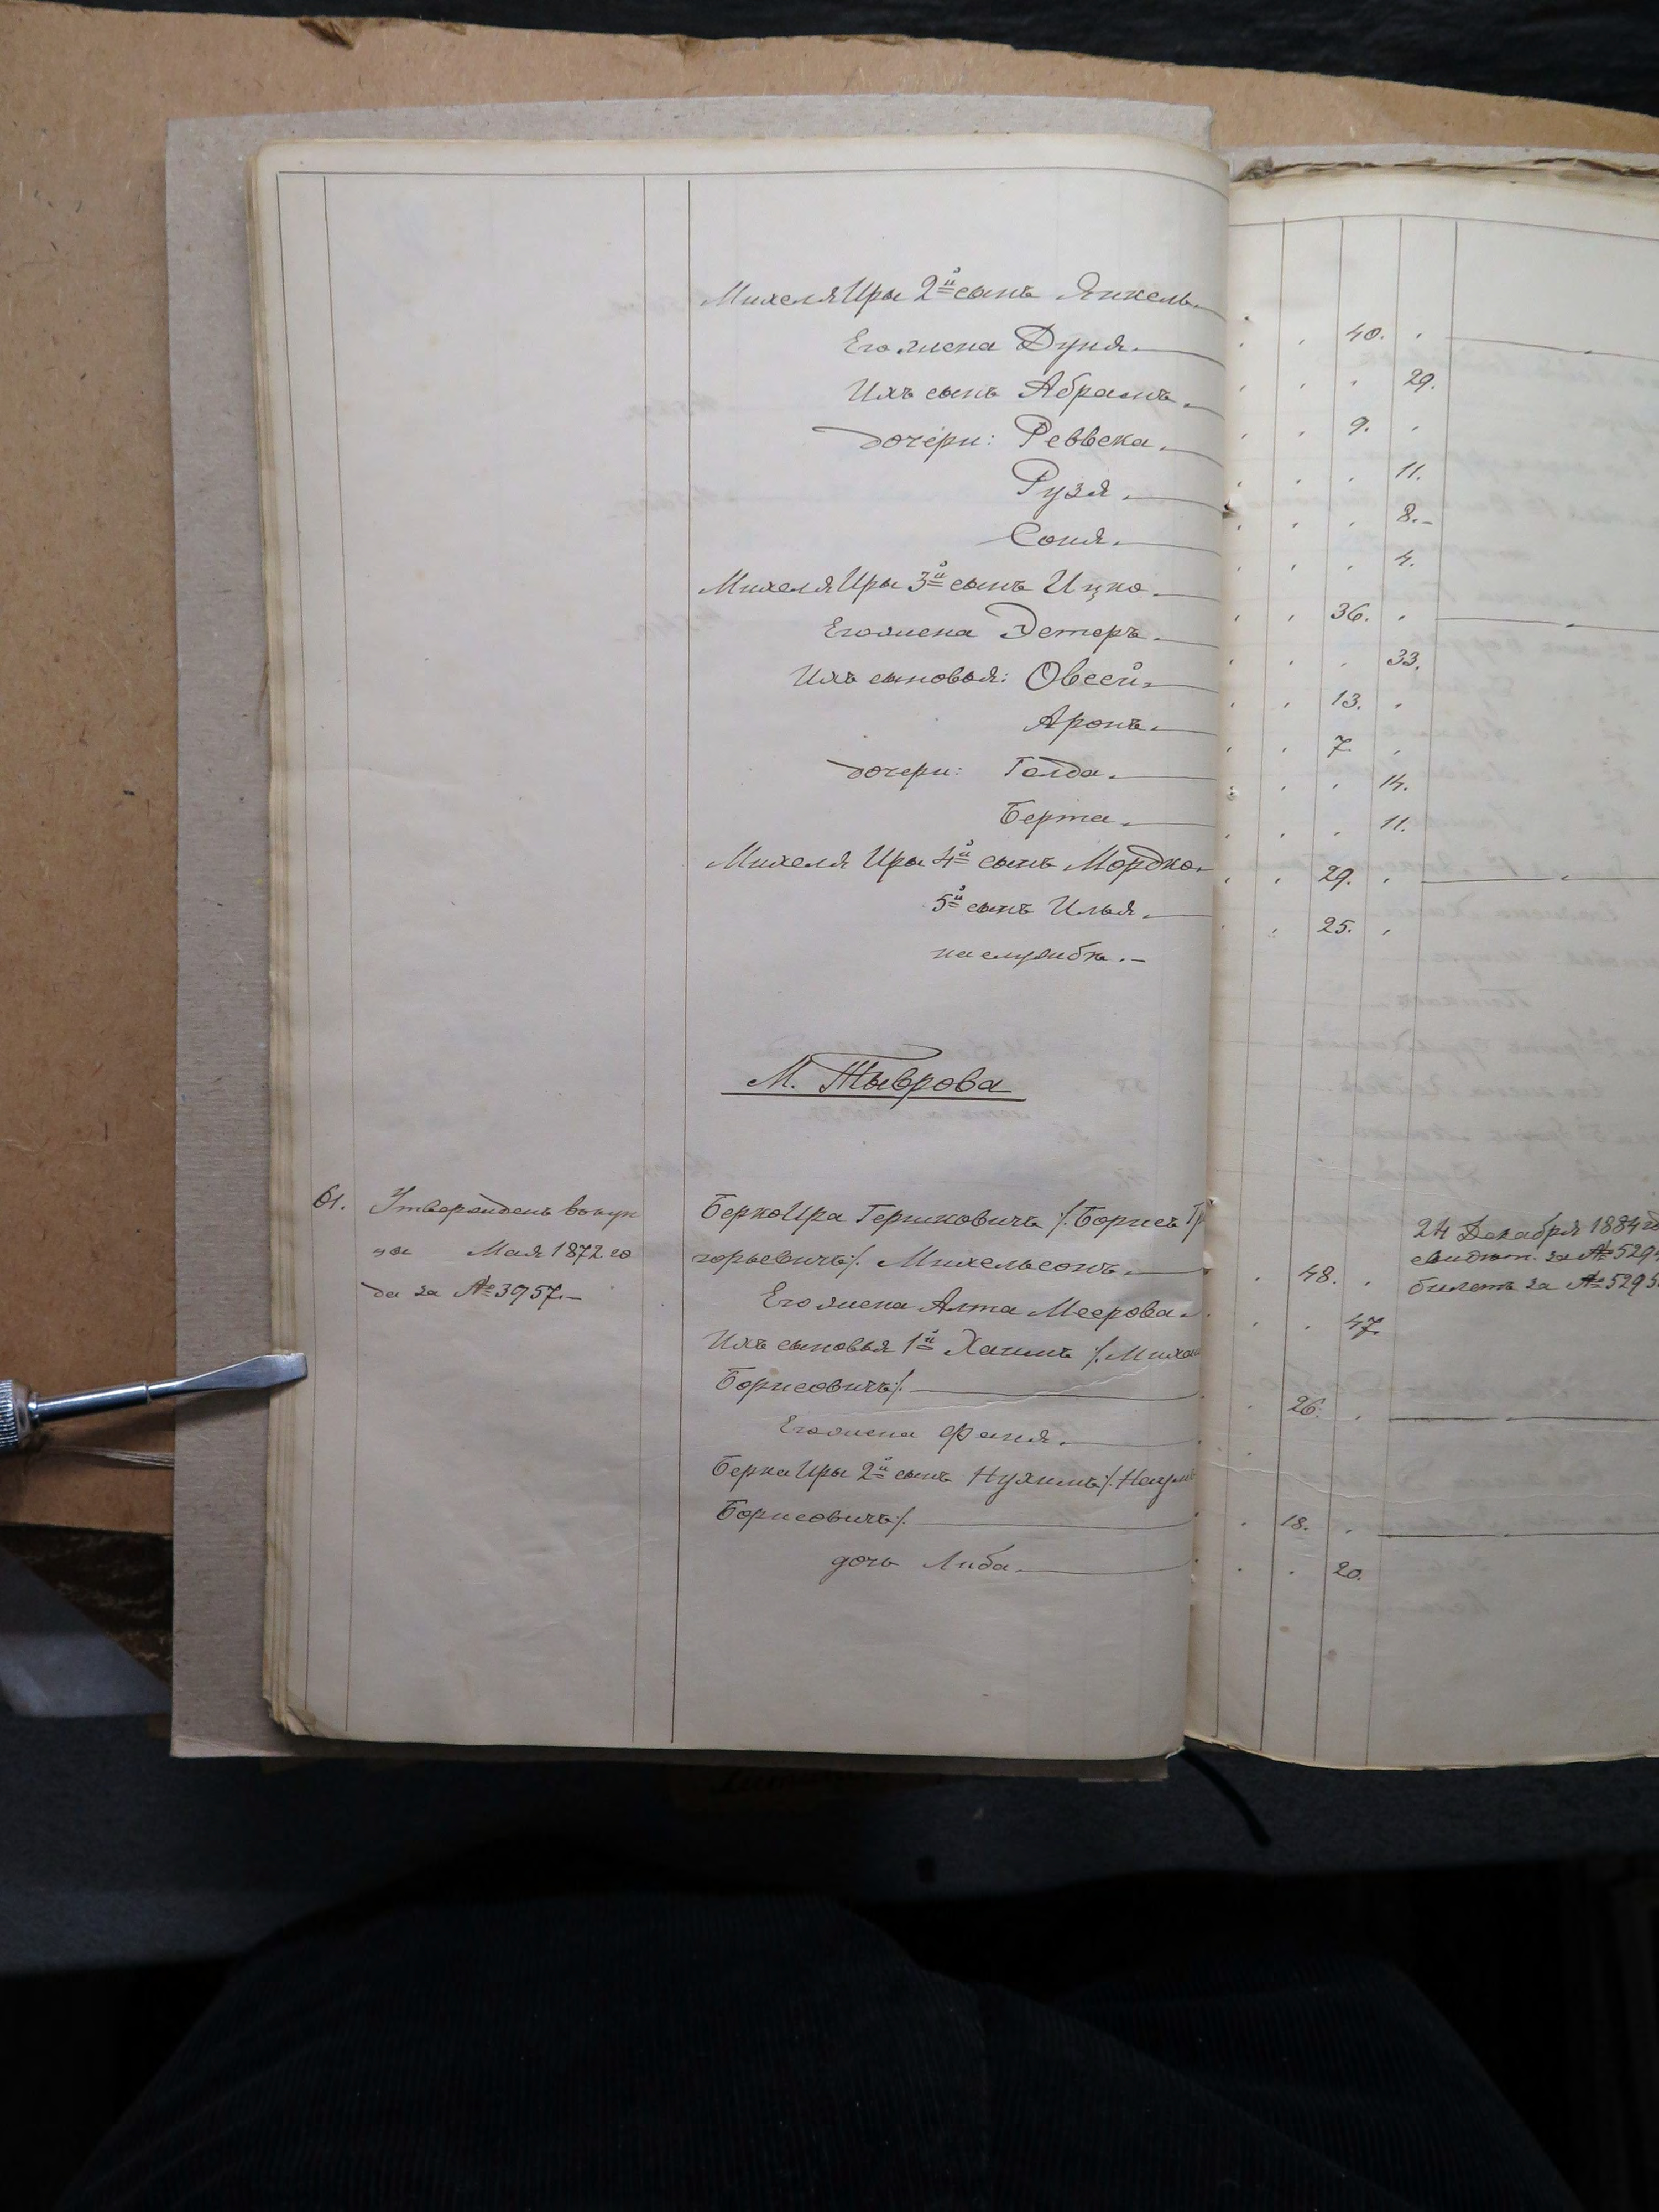 МихеляИры 2й сынъ Янкель. 40.
Его жена Дуня. 29.
Ихъ сынъ Абрамъ. 9.
дочери: Реввека. 11.
Рузя. 8.
Соня. 4.
МихеляИры 3й сынъ Ицко. 36.
Его жена Эстеръ. 33.
Ихъ сыновья: Овсей. 13.
Аронъ. 7.
дочери: Голда. 14.
Берта. 11.
Михеля Иры 4й сынъ Мордко. 29.
5й сынъ Илья. 25.
на службѣ.
М. Тыврова
61. Утвержденъ вокуп БеркоИра Гершковичъ /. Борисъ Гр 24 Декабря 1884 го
цы Мая 1872 го горьевичъ ./. Михельсонъ. 48. свидѣт. за № 529
да за № 3957. Его жена Алта Меерова. 47. билетъ за № 5295
Ихъ сыновья 1й Хаимъ /. Миха
Борисовичъ ./. 26.
Его жена Фаня.
БеркаИры 2й сынъ Нухимъ /. Наумъ
Борисовичъ ./. 18.
дочь Либа 20.